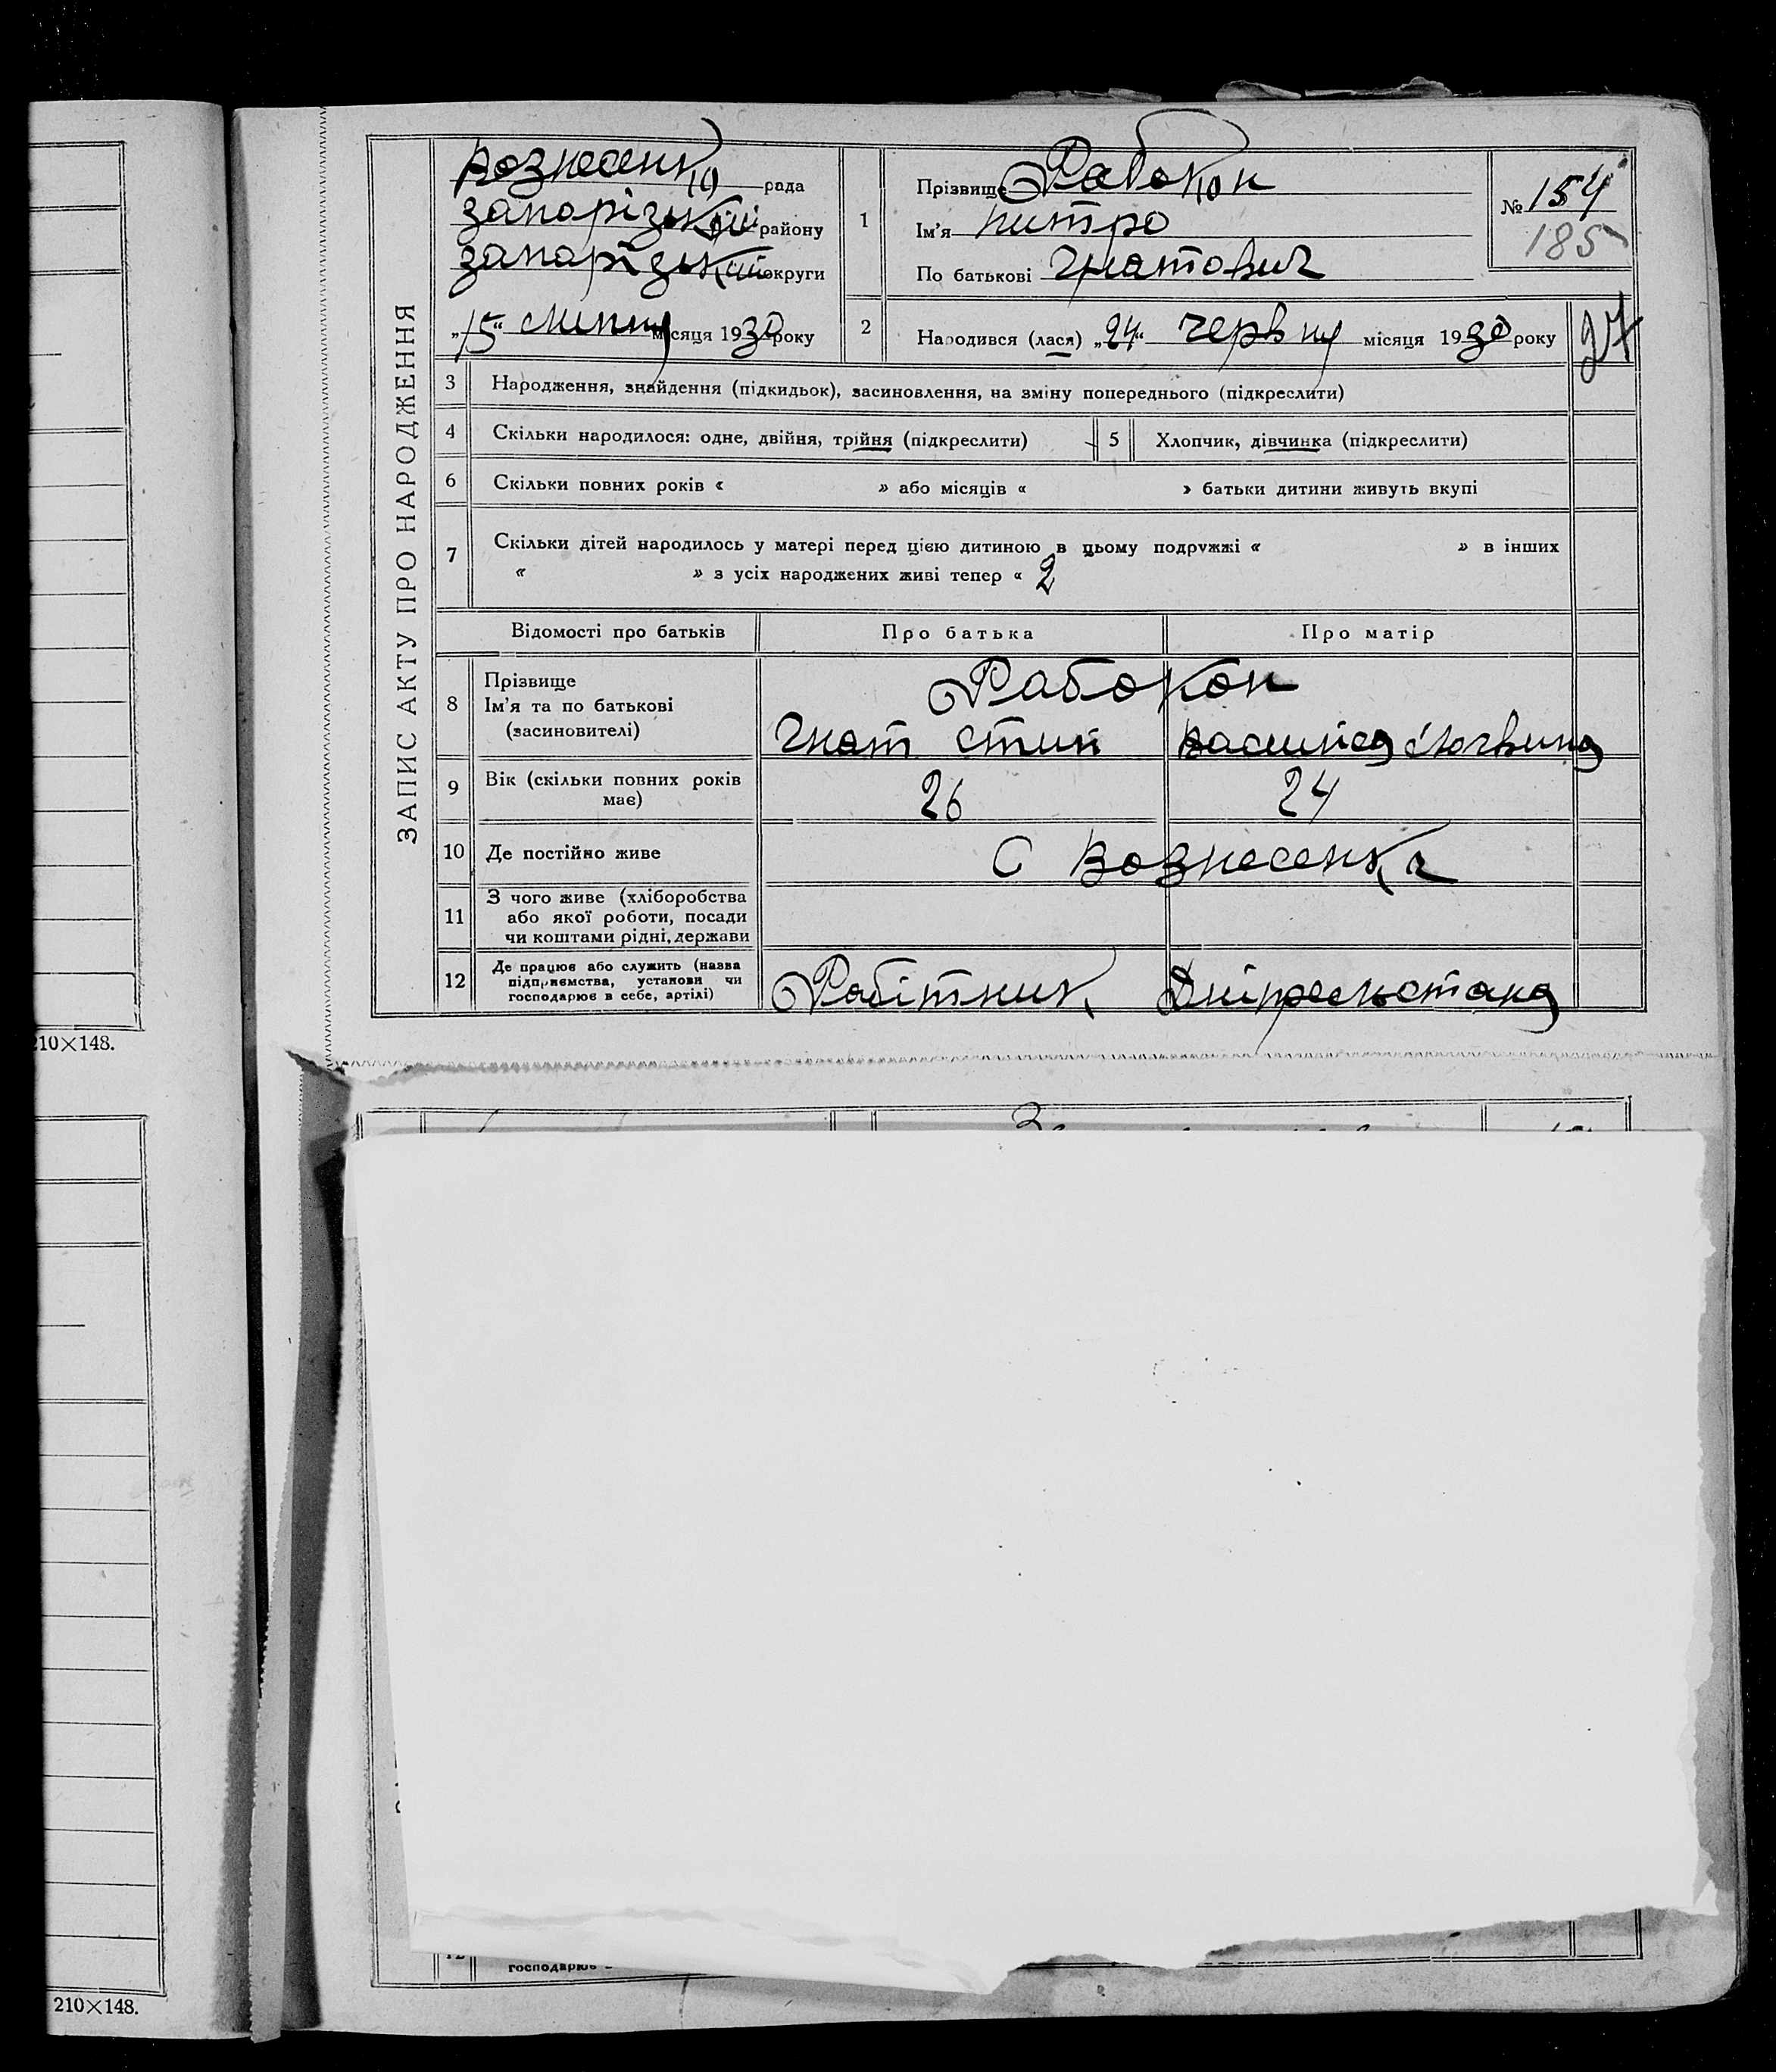 ЗАПИС АКТУ ПРО НАРОДЖЕННЯ
рада
запорізький району
запорізький округи
„15“ липня місяця 1930 року
1
Прізвище Рабокон
Ім'я питро
По батькові Гнатович
№ 154
185
2
Народився (лася) „24“ червня місяця 1930 року
3 Народження, знайдення (підкидьок), засиновлення, на зміну попереднього (підкреслити)
4 Скільки народилося: одне, двійня, трійня (підкреслити)
5 Хлопчик, дівчинка (підкреслити)
6 Скільки повних років « » або місяців « » батьки дитини живуть вкупі
7 Скільки дітей народилось у матері перед цією дитиною в цьому подружжі « » в інших
« » з усіх народжених живі тепер « 2
Відомості про батьків Про батька Про матір
8 Прізвище
Ім'я та по батькові
(засиновителі)
Рабокон
Гнат
9 Вік (скільки повних років
має)
26 24
10 Де постійно живе С Вознесенка
11 З чого живе (хліборобства
або якої роботи, посади
чи коштами рідні, держави
12 Де працює або служить (назва
підприємства, установи чи
господарює в себе, артілі)
Робітник
10×148.
господарює
210×148.